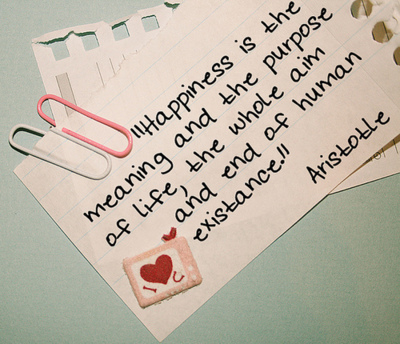 "Happiness is the
meaning and the purpose
of life, the whole aim
and end of human
existance."
Aristotle
I U